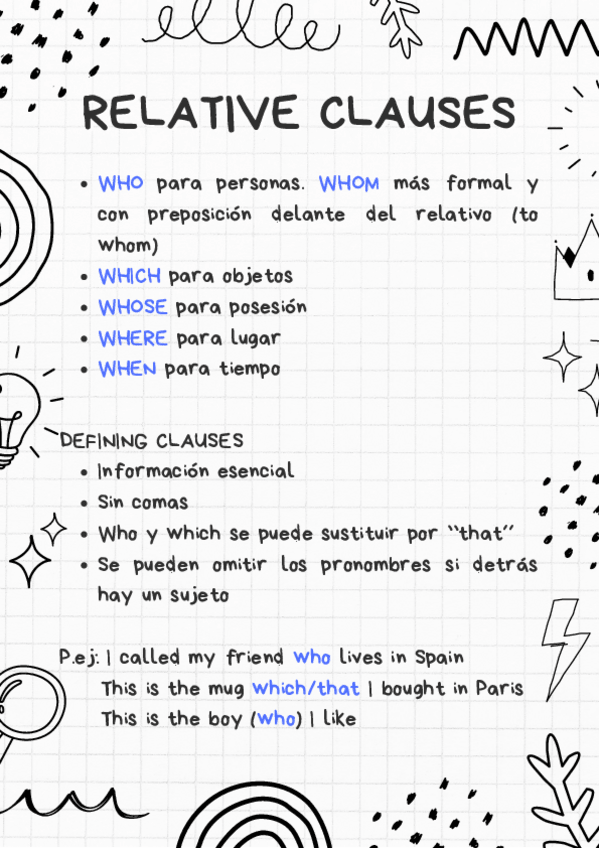 RELATIVE CLAUSES
• WHO para personas. WHOM más formal y
con preposición delante del relativo (to
whom)
• WHICH para objetos
• WHOSE para posesión
• WHERE para lugar
• WHEN para tiempo
DEFINING CLAUSES
• Información esencial
• Sin comas
• Who y which se puede sustituir por "that"
• Se pueden omitir los pronombres si detrás
hay un sujeto
P.ej: I called my friend who lives in Spain
This is the mug which/that I bought in Paris
This is the boy (who) I like